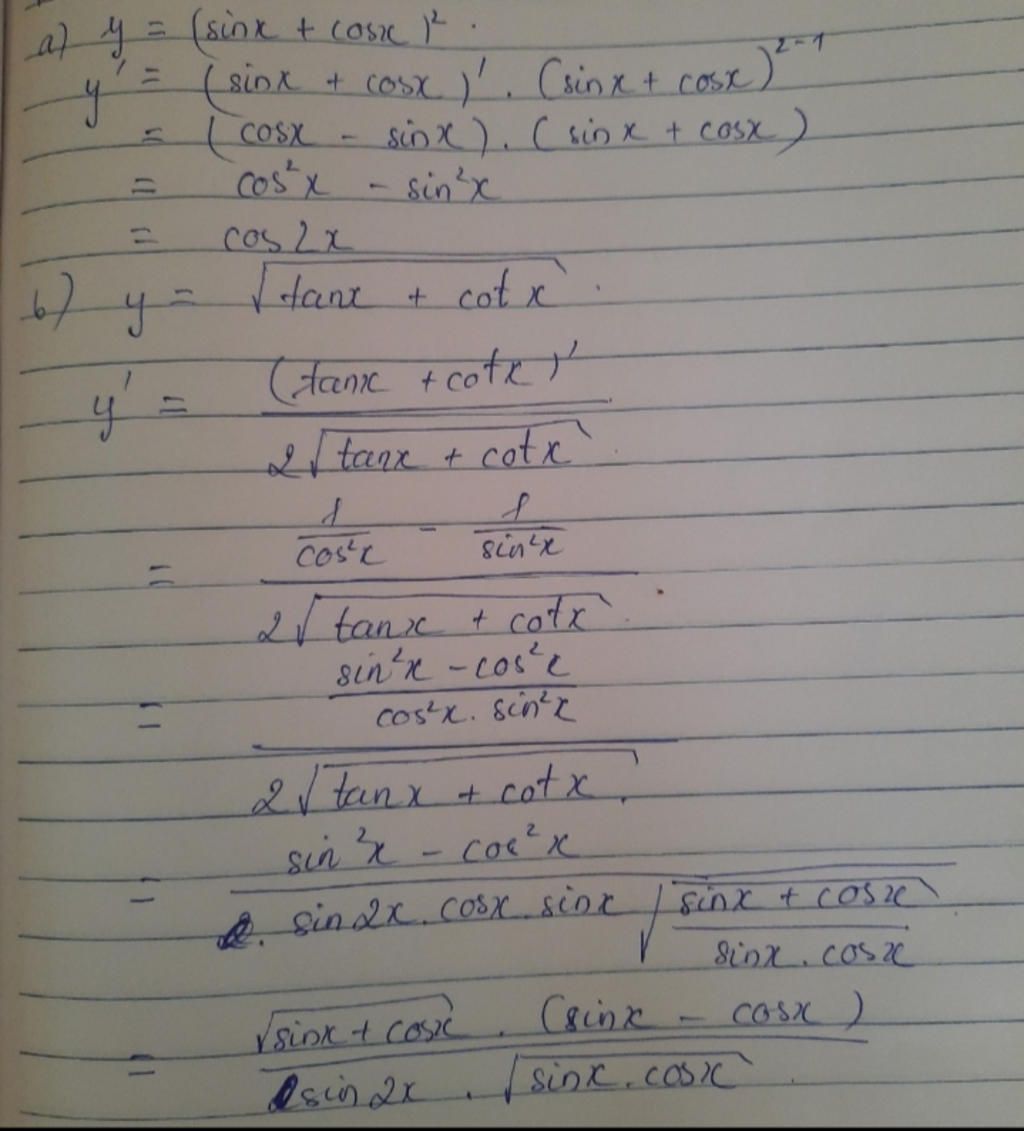 a) y = (sinx + cosx)².
y' = (sinx + cosx)' . (sinx + cosx)²⁻¹
= (cosx - sinx). (sinx + cosx)
= cos²x - sin²x
= cos2x
b) y = √(tanx + cotx).
y' = (tanx + cotx)' / 2√(tanx + cotx).
= (1/cos²x - 1/sin²x) / 2√(tanx + cotx).
= ((sin²x - cos²x)/(cos²x. sin²x)) / 2√(tanx + cotx).
= (sin²x - cos²x) / . sin2x. cosx. sinx √((sinx + cosx)/(sinx. cosx))
= √(sinx + cosx) . (sinx - cosx) / sin2x . √(sinx. cosx).